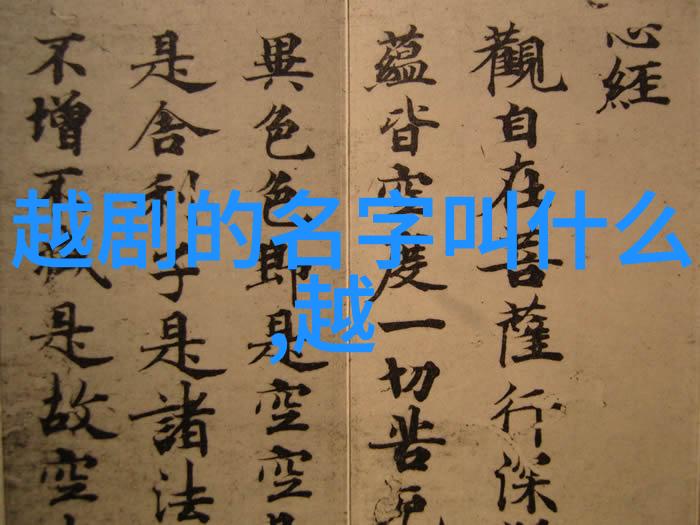 心經
觀自在菩薩行深
蘊皆空度一切苦厄
異色色即是空空
是舍利子是諸法
不增不減是故空
越剧的名字叫什么
,越